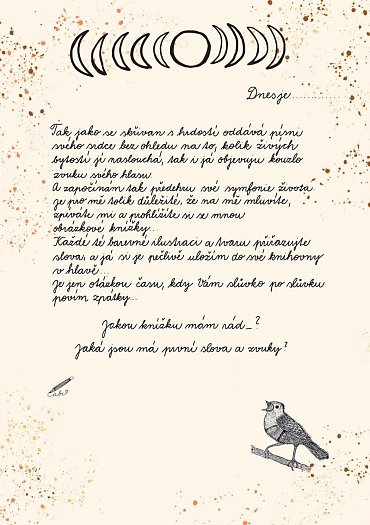 Dnes je..............
Tak jako se skřivan s hrdostí oddává písni
svého srdce bez ohledu na to, kolik živých
bytostí jí naslouchá, tak i já objevuji kouzlo
zvuku svého hlasu.
A započínám tak předehru své symfonie života.
Je pro mě tolik důležité, že na mě mluvíte,
zpíváte mi a prohlížíte si se mnou
obrázkové knížky...
Každé té barevné ilustraci a tvaru přiřazujte
slova, a já si je pečlivě uložím do své knihovny
v hlavě...
Je jen otázkou času, kdy Vám slůvko po slůvku
povím zpátky...
Jakou knížku mám rád_?
Jaká jsou má první slova a zvuky?